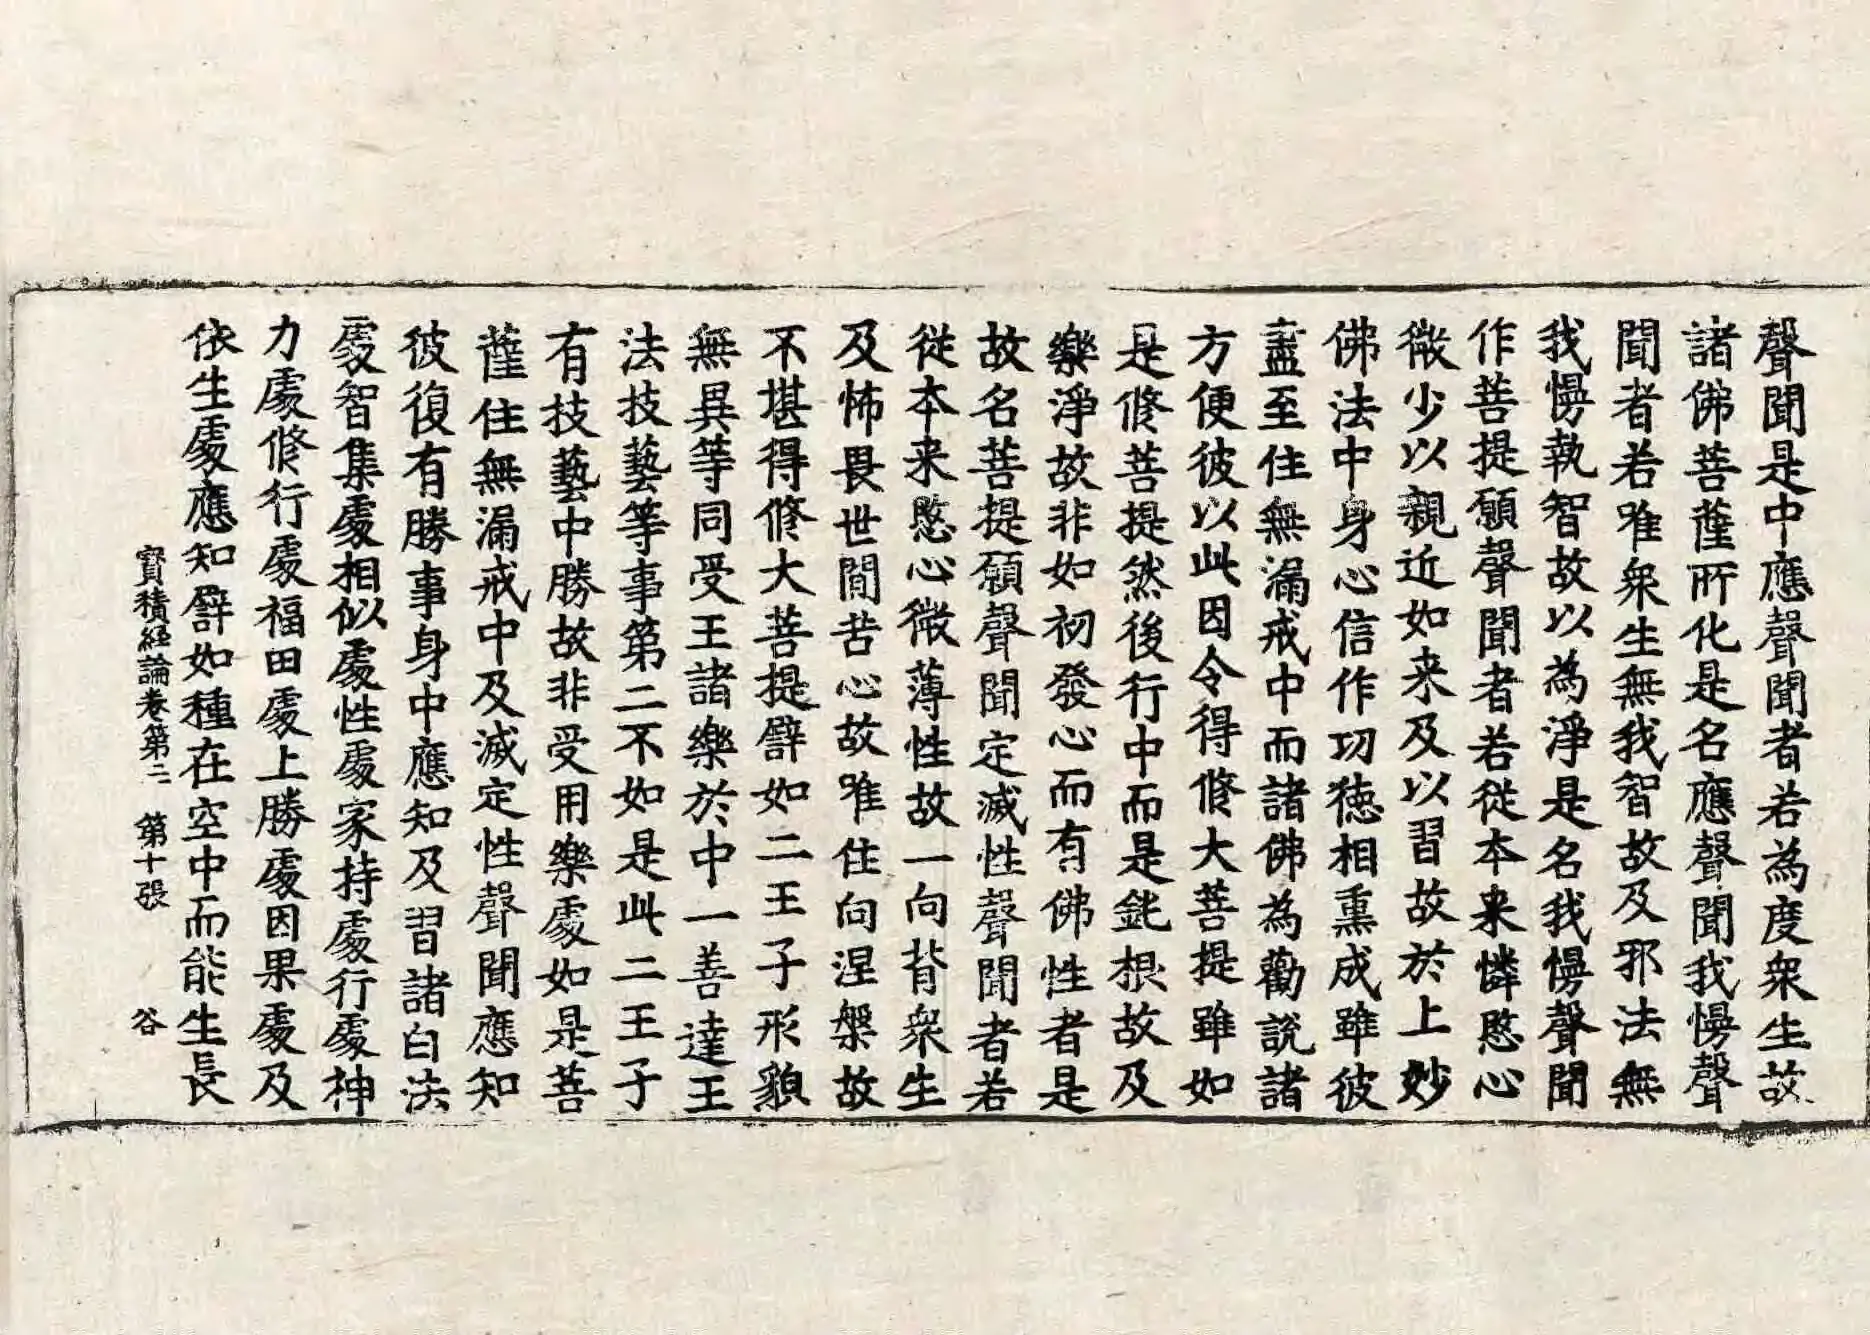 聲聞是中應聲聞者若為度衆生故
諸佛菩薩所化是名應聲聞我慢聲
聞者若唯衆生無我智故及邪法無
我慢執智故以為淨是名我慢聲聞
作菩提願聲聞者若從本来憐愍心
微少以親近如来及以習故於上妙
佛法中身心信作功徳相熏成雖彼
盡至住無漏戒中而諸佛為勸說諸
方便彼以此因令得修大菩提雖如
是修菩提然後行中而是鈍根故及
樂淨故非如初發心而有佛性者是
故名菩提願聲聞定滅性聲聞者若
從本来愍心微薄性故一向背衆生
及怖畏世間苦心故唯住向涅槃故
不堪得修大菩提譬如二王子形貌
無異等同受王諸樂於中一善達王
法技藝等事第二不如是此二王子
有技藝中勝故非受用樂處如是菩
薩住無漏戒中及滅定性聲聞應知
彼復有勝事身中應知及習諸白法
處智集處相似處性處家持處行處神
力處修行處福田處上勝處因果處及
依生處應知譬如種在空中而能生長
寳積経論卷第二　第十張　谷